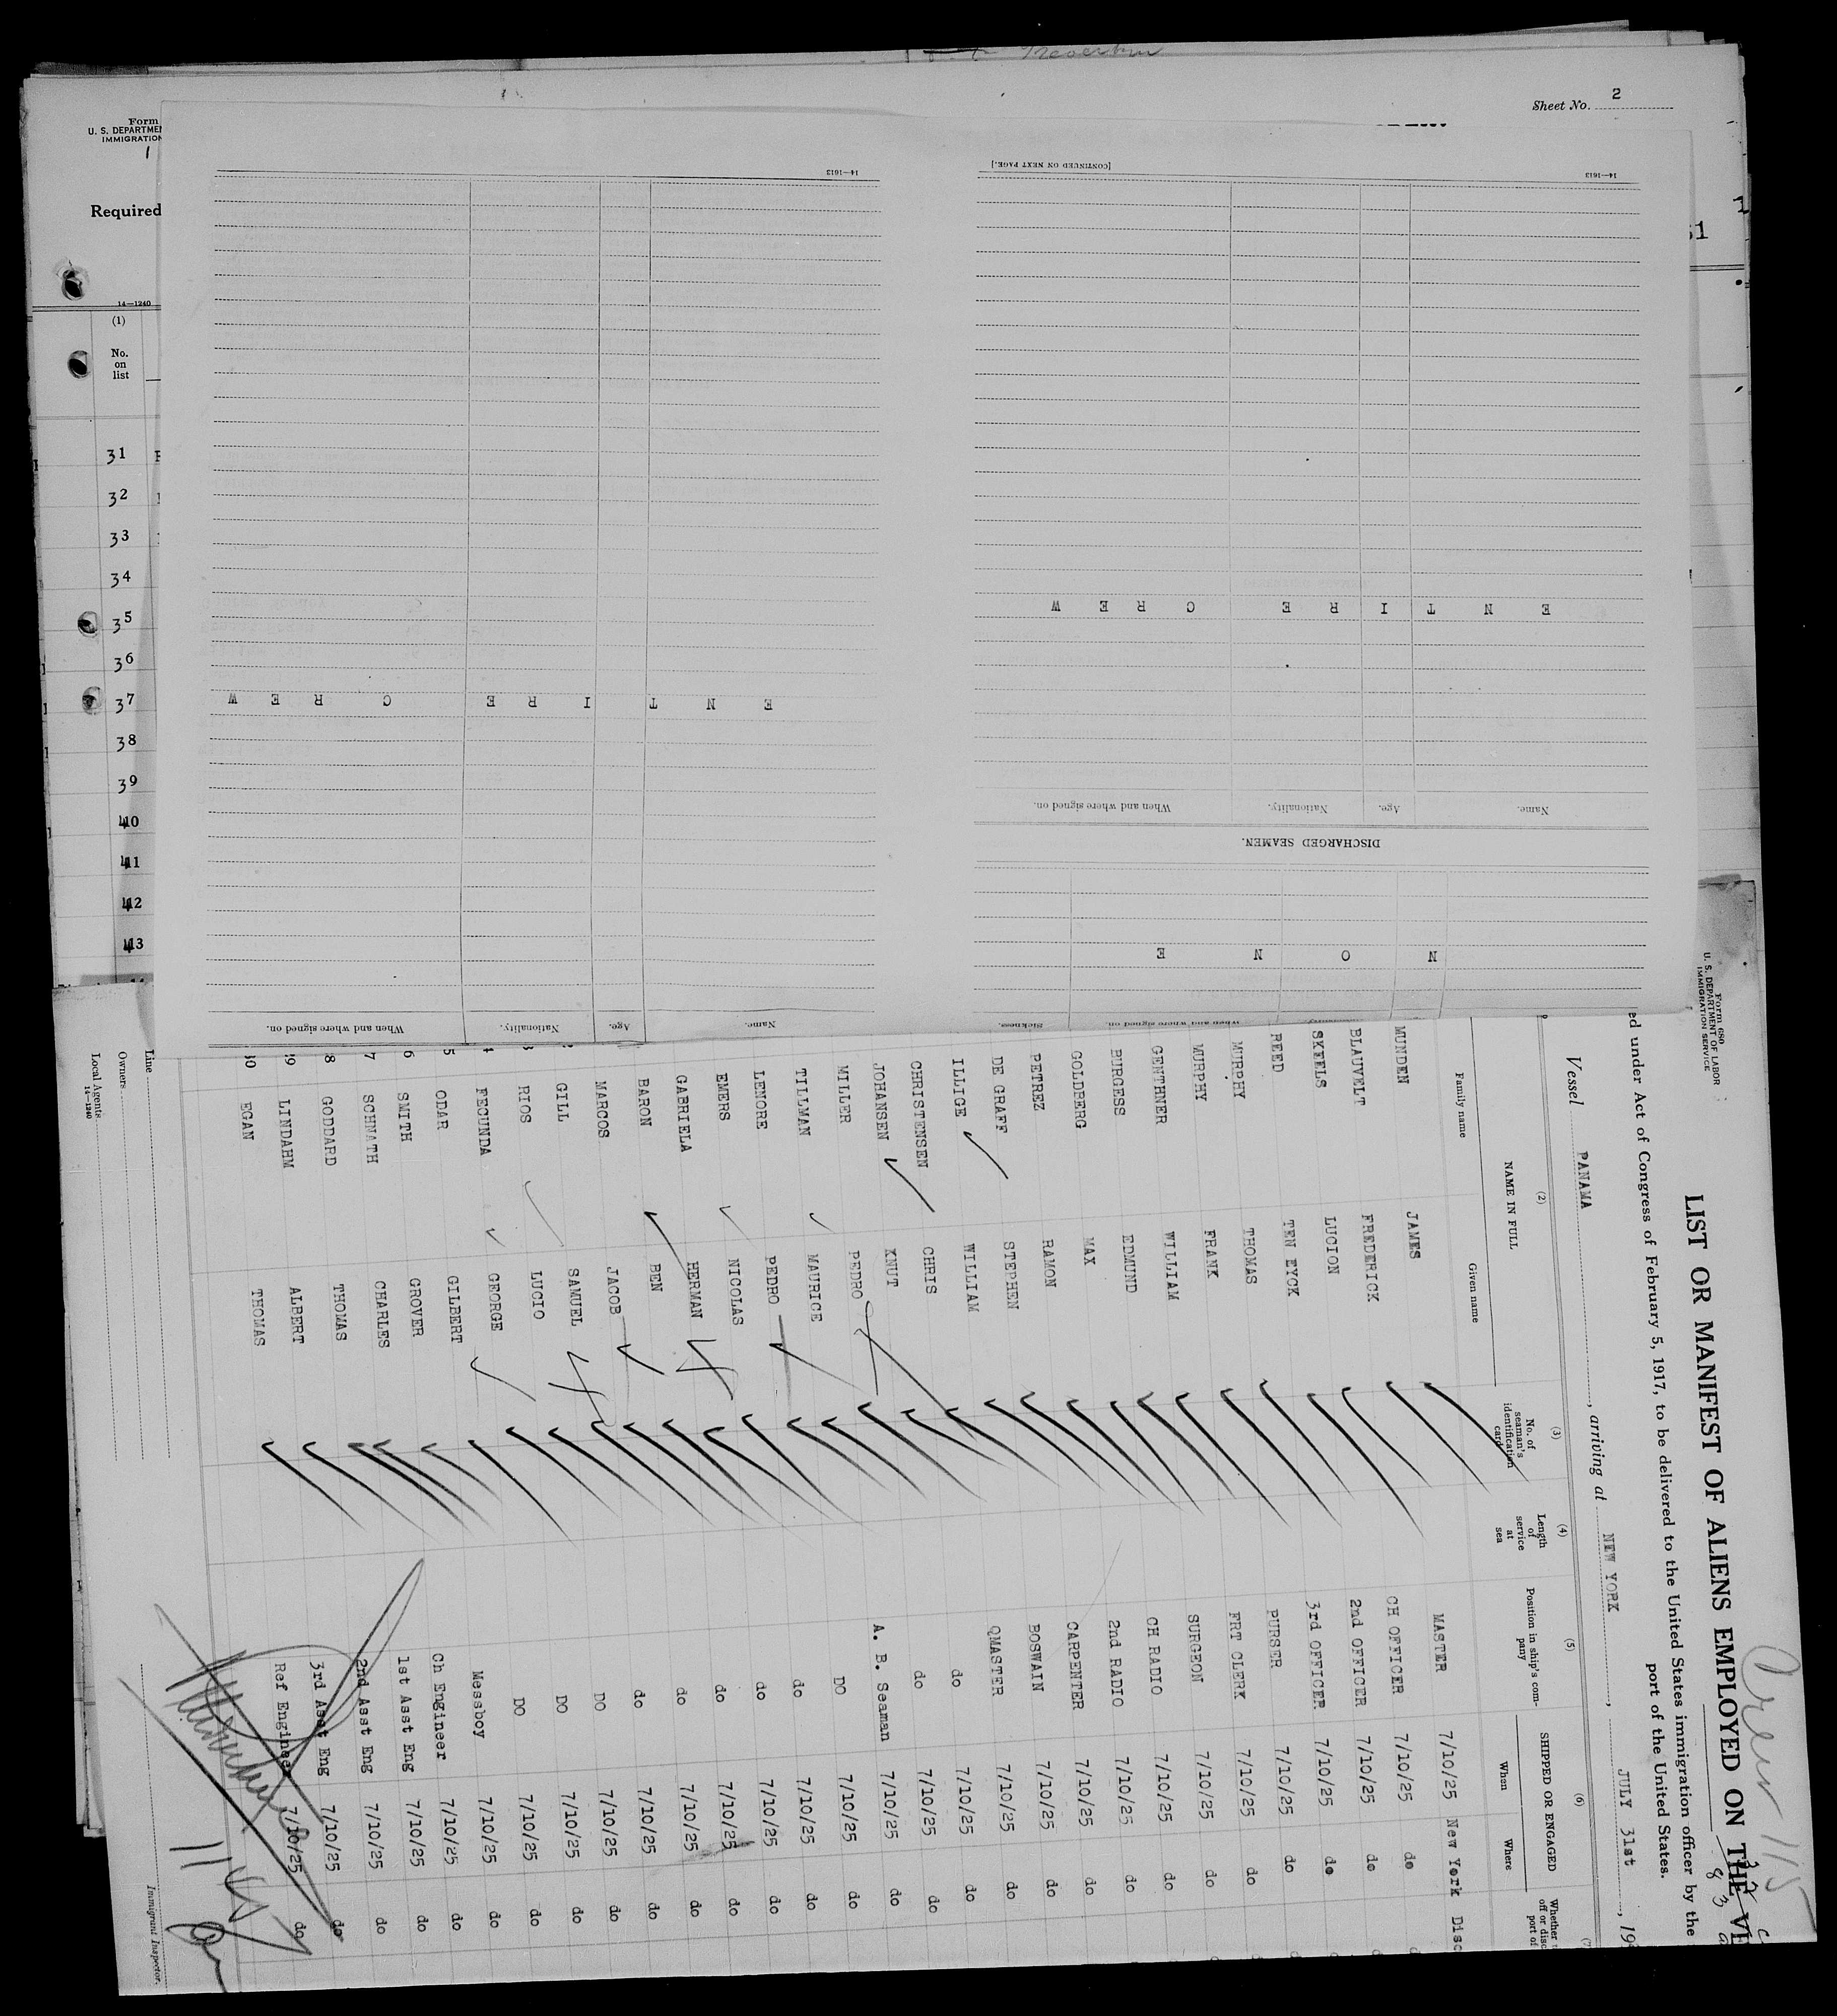 Sheet No. 2
Form
U. S. DEPARTME
IMMIGRATION
Required
14—1240
(1)
No.
on
list
31
32
33
34
35
36
37
38
39
40
41
42
43
Name. Age. Nationality. When and where signed on. Sickness.
N O N E
DISCHARGED SEAMEN.
Name. Age. Nationality. When and where signed on.
E N T I R E C R E W
14—1613
[CONTINUED ON NEXT PAGE.]
Name. Age. Nationality. When and where signed on.
E N T I R E C R E W
14—1613
Form 680
U. S. DEPARTMENT OF LABOR
IMMIGRATION SERVICE
LIST OR MANIFEST OF ALIENS EMPLOYED ON THE VE
ed under Act of Congress of February 5, 1917, to be delivered to the United States immigration officer by the
port of the United States.
Vessel PANAMA, arriving at NEW YORK, JULY 31st, 19
(2) (3) (4) (5) (6)
NAME IN FULL
Family name Given name
No. of seaman's identification card
Length of service at sea
Position in ship's company
SHIPPED OR ENGAGED
When Where
MUNDEN JAMES MASTER 7/10/25 New York Disc
BLAUVELT FREDERICK CH OFFICER 7/10/25 do
SKEELS LUCION 2nd OFFICER 7/10/25 do
REED TEN EYCK 3rd OFFICER 7/10/25 do
MURPHY THOMAS PURSER 7/10/25 do
MURPHY FRANK FRT CLERK 7/10/25 do
GENTHNER WILLIAM SURGEON 7/10/25 do
BURGESS EDMUND CH RADIO 7/10/25 do
GOLDBERG MAX 2nd RADIO 7/10/25 do
PETREZ RAMON CARPENTER 7/10/25 do
DE GRAFF STEPHEN BOSWAIN 7/10/25 do
ILLIGE WILLIAM QMASTER 7/10/25 do
CHRISTENSEN CHRIS do 7/10/25 do
JOHANSEN KNUT do 7/10/25 do
MILLER PEDRO A. B. Seaman 7/10/25 do
TILLMAN MAURICE DO 7/10/25 do
LENORE PEDRO do 7/10/25 do
EMERS NICOLAS do 7/10/25 do
GABRIELA HERMAN do 7/10/25 do
BARON BEN do 7/10/25 do
MARCOS JACOB do 7/10/25 do
GILL SAMUEL DO 7/10/25 do
RIOS LUCIO DO 7/10/25 do
FECUNDA GEORGE DO 7/10/25 do
5 ODAR GILBERT Messboy 7/10/25 do
6 SMITH GROVER Ch Engineer 7/10/25 do
7 SCHNATH CHARLES 1st Asst Eng 7/10/25 do
8 GODDARD THOMAS 2nd Asst Eng 7/10/25 do
9 LINDAHM ALBERT 3rd Asst Eng 7/10/25 do
30 EGAN THOMAS Ref Engineer 7/10/25 do
Line
Owners
Local Agents
14—1240
Immigrant Inspector.